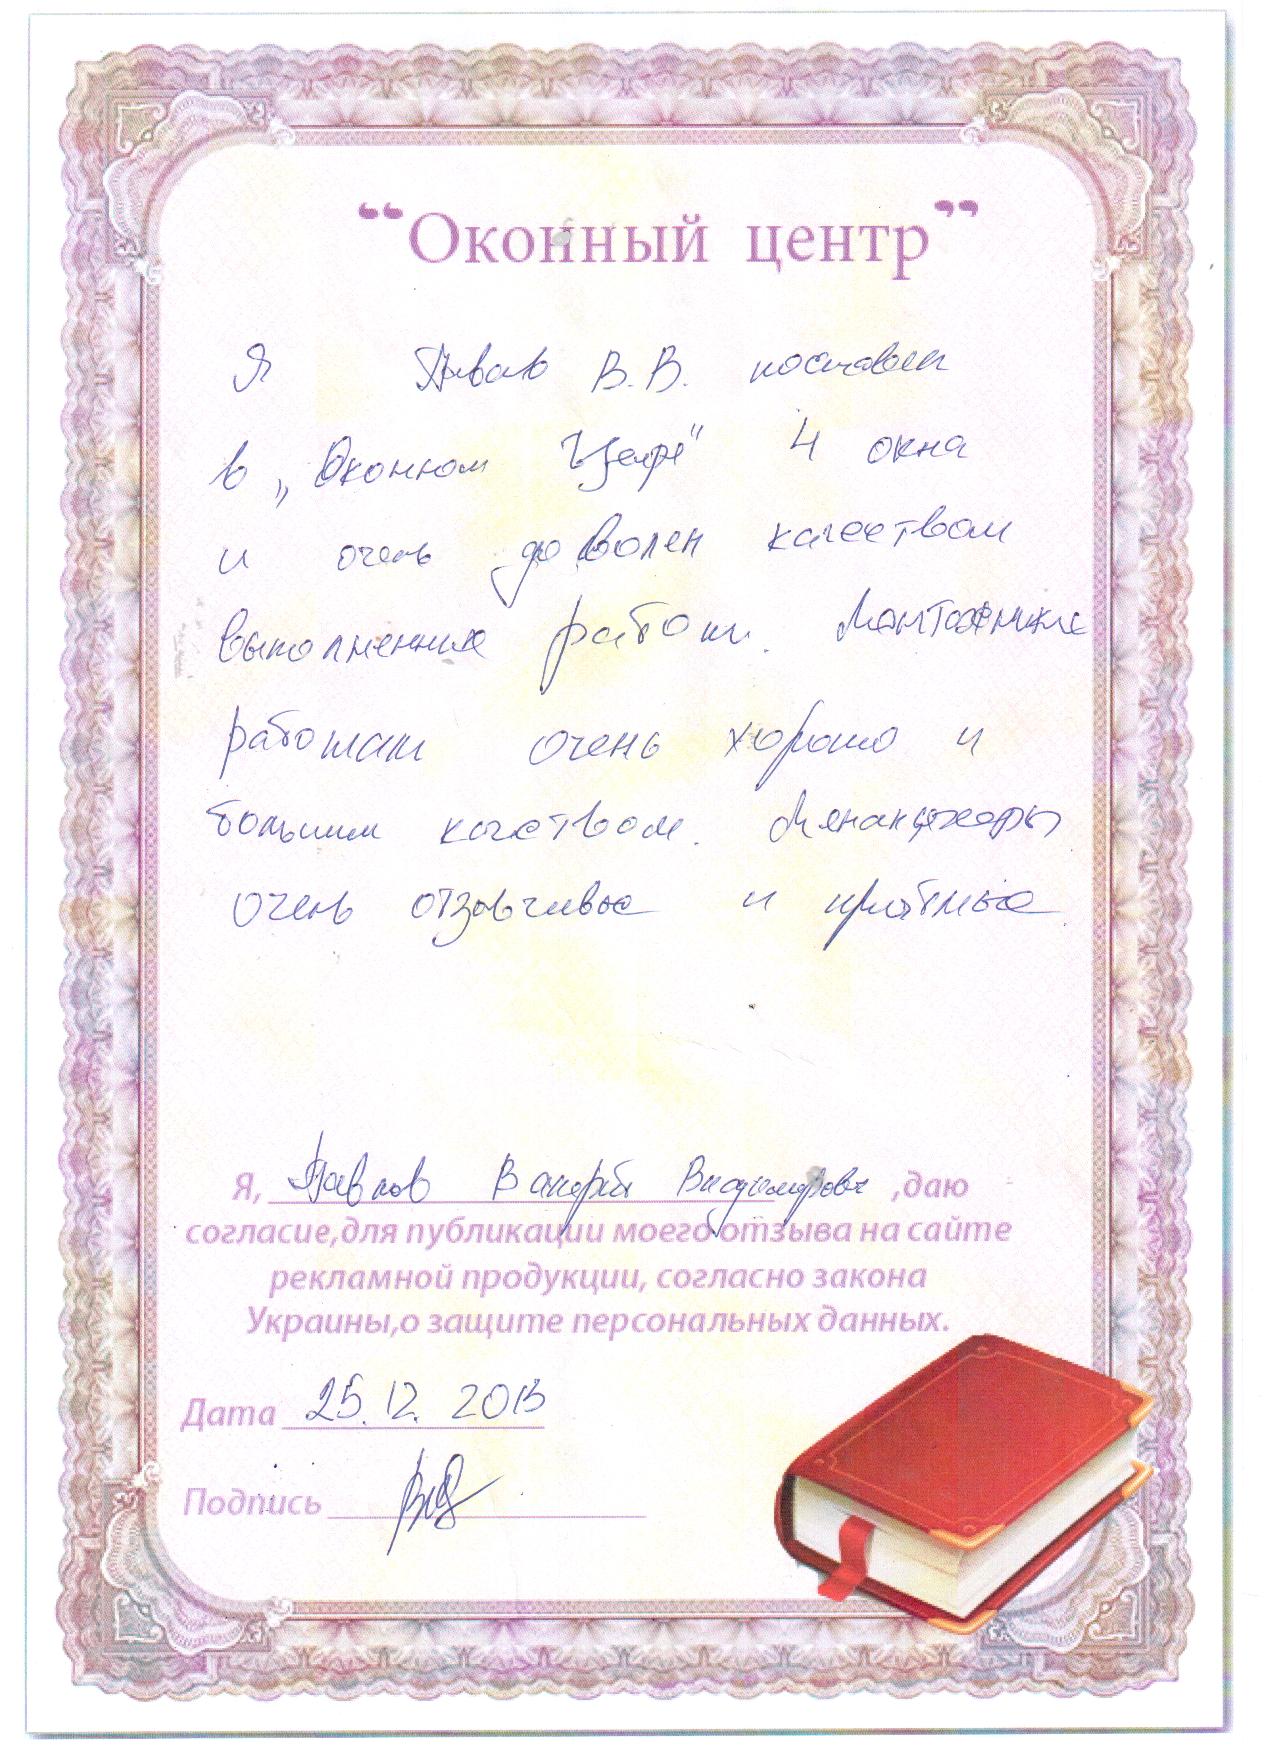 “Оконный центр”
Я Павлов В.В. поставил
в „Оконном Центре" 4 окна
и очень доволен качеством
выполнения работы. Монтажники
работают очень хорошо и
большим качеством. Мэнанджеры
очень отзывчивые и приятные
Я, Павлов Валерий Владимирович ,даю
согласие,для публикации моего отзыва на сайте
рекламной продукции, согласно закона
Украины,о защите персональных данных.
Дата 25.12.2013
Подпись